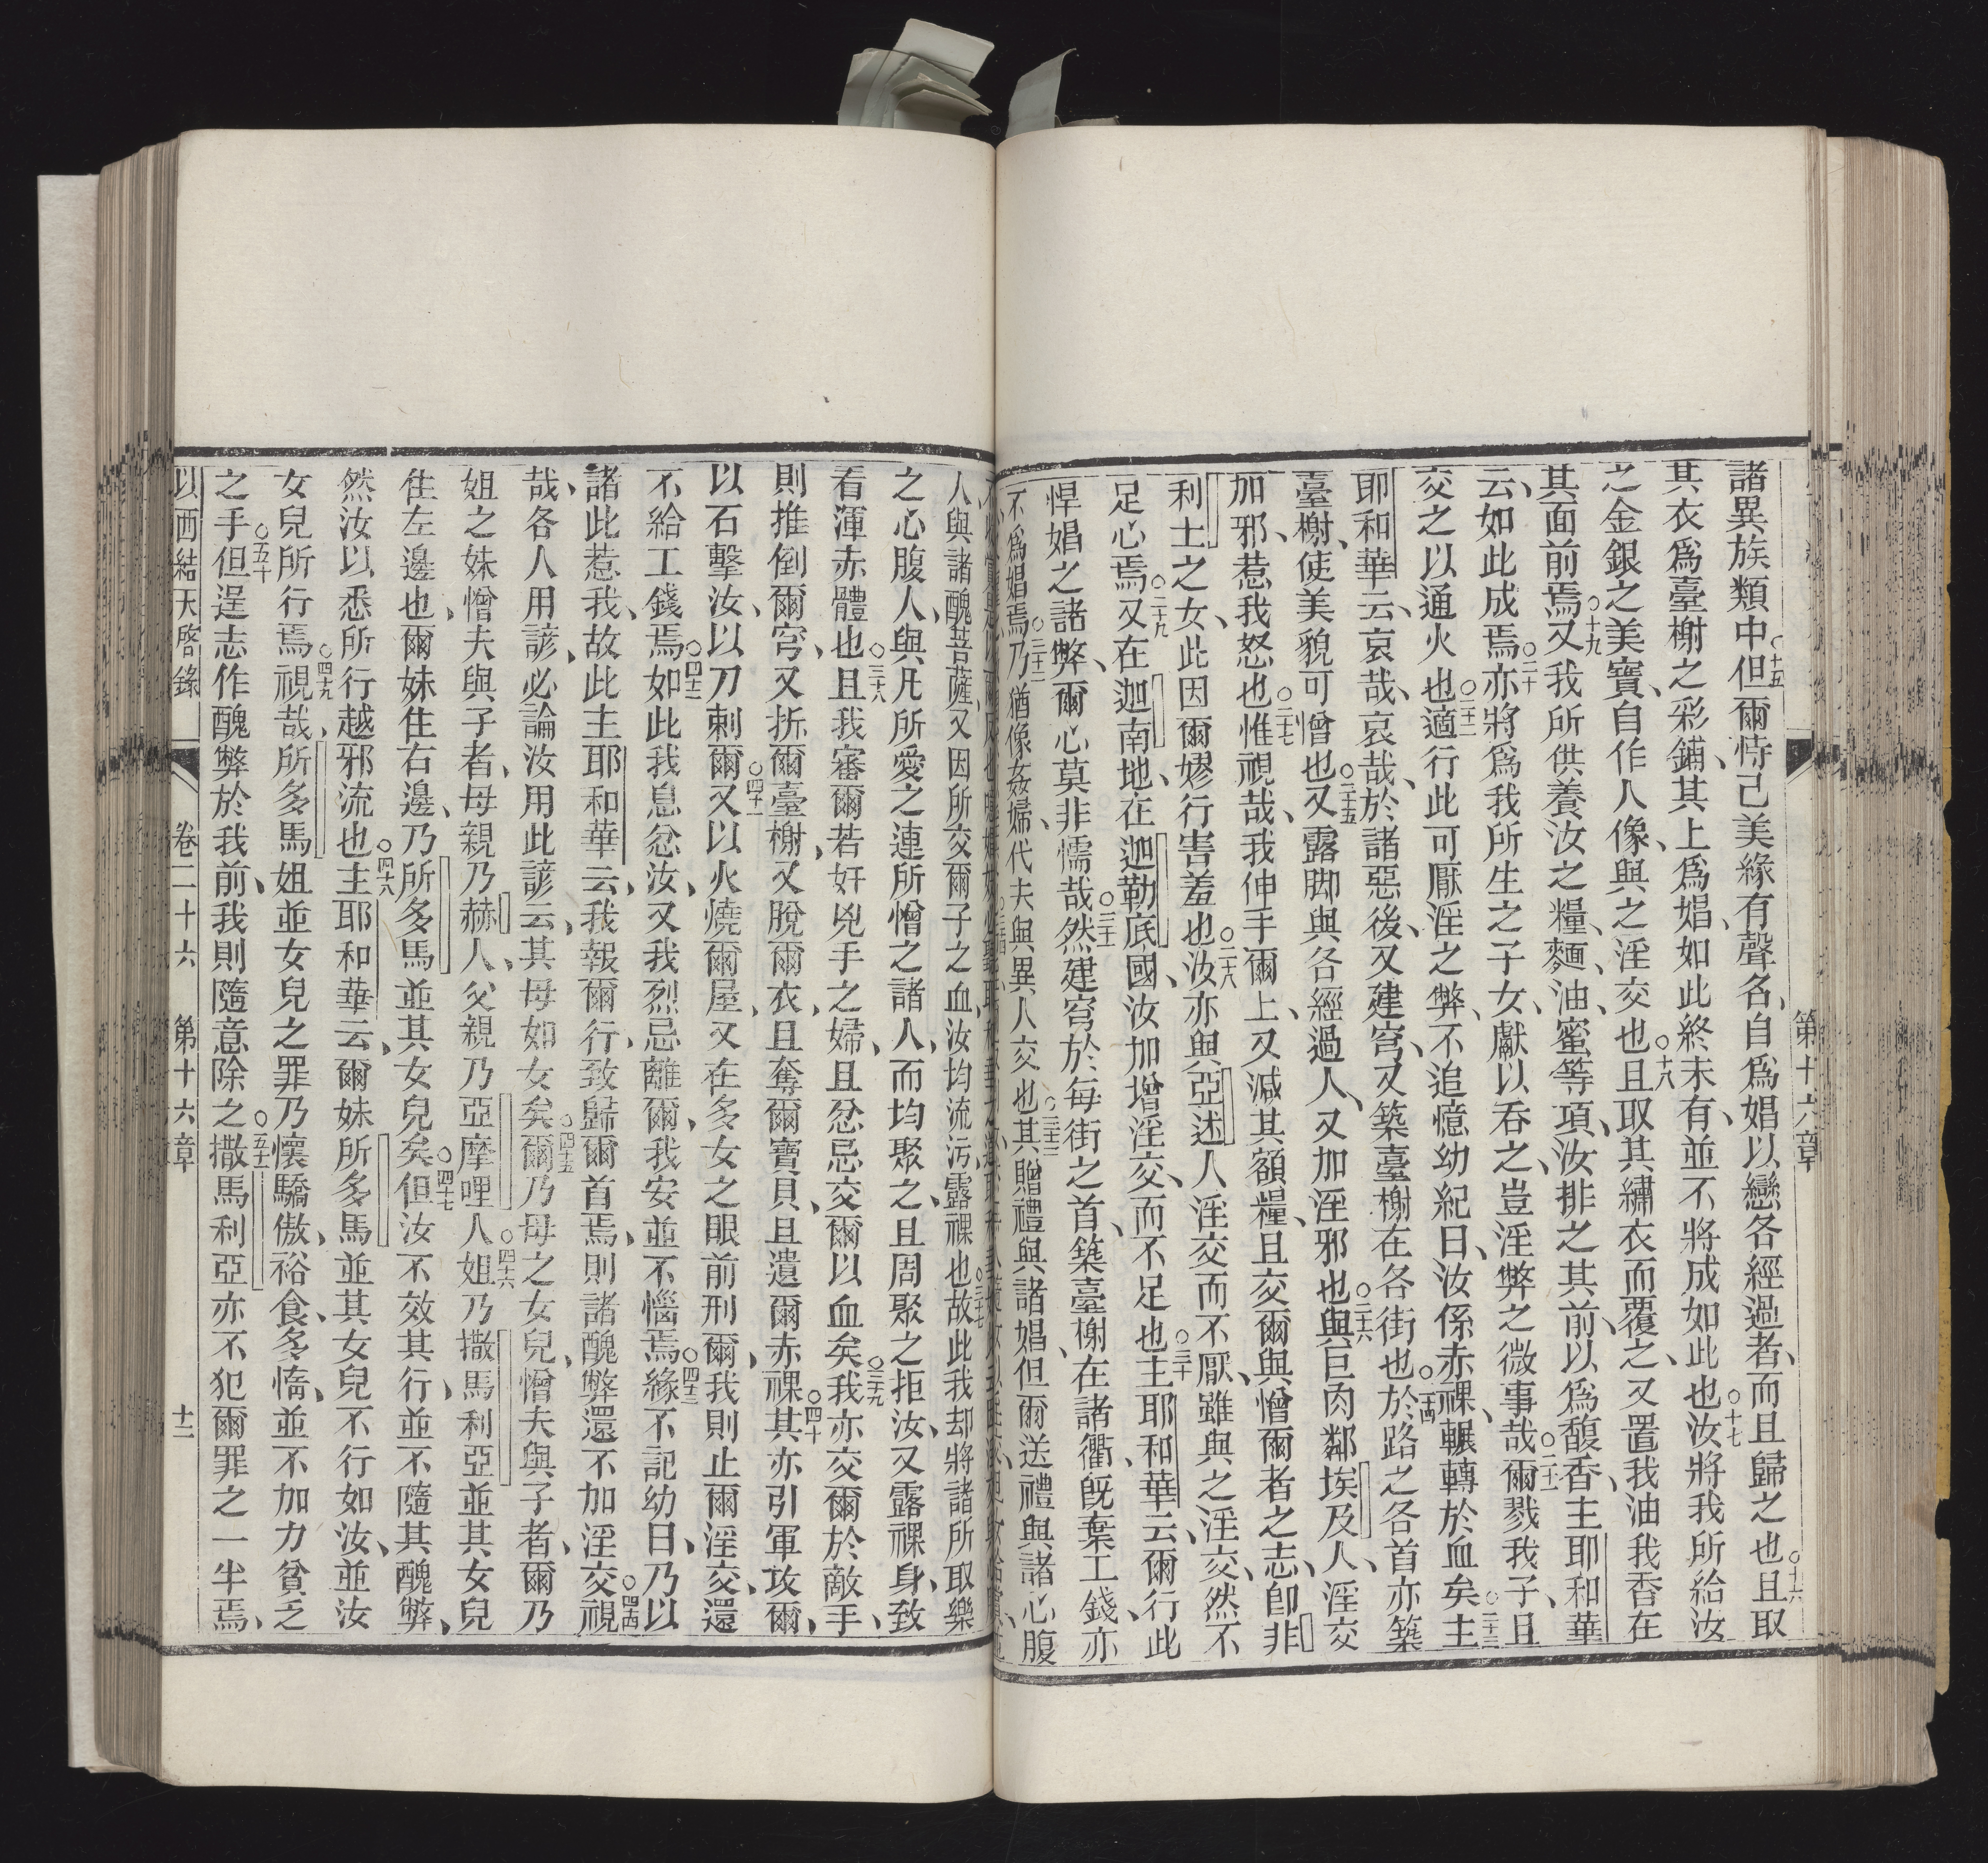 諸異族類中○十五但爾恃己美緣有聲名、自爲娼以戀各經過者、而且歸之也○十六且取
其衣爲臺榭之彩鋪、其上爲娼、如此終未有、並不將成如此也○十七汝將我所給汝
之金銀之美寶、自作人像、與之淫交也○十八且取其繡衣而覆之、又置我油我香在
其面前焉○十九又我所供養汝之糧、麵、油、蜜等項、汝排之其前、以爲馥香、主耶和華
云、如此成焉○二十亦將爲我所生之子女、獻以吞之、豈淫弊之微事哉○二十一爾戮我子、且
交之以通火也○二十二適行此可厭淫之弊、不追憶幼紀日、汝係赤裸、輾轉於血矣○二十三主
耶和華云、哀哉、哀哉、於諸惡後、又建穹、又築臺榭在各街也○二十四於路之各首亦築
臺榭、使美貌可憎也○二十五又露脚與各經過人、又加淫邪也○二十六與巨肉鄰埃及人、淫交
加邪、惹我怒也○二十七惟視哉、我伸手爾上、又減其額糧、且交爾與憎爾者之志、卽非
利士之女、此因爾嫪行害羞也○二十八汝亦與亞述人淫交而不厭、雖與之淫交、然不
足心焉○二十九又在迦南地、在迦勒底國、汝加增淫交、而不足也○三十主耶和華云、爾行此
悍娼之諸弊、爾心莫非懦哉○三十一然建穹於每街之首、築臺榭在諸衢、旣棄工錢、亦
不爲娼焉○三十二乃猶像姦婦、代夫與異人交也○三十三其贈禮與諸娼、但爾送禮與諸心腹
人、與諸醜菩薩、又因所交爾子之血、汝均流污、露祼也○三十七故此我却將諸所取樂
之心腹人、與凡所愛之連所憎之諸人、而均聚之、且周聚之拒汝、又露祼身、致
看渾赤體也○三十八且我審爾若奸兇手之婦、且忿忌交爾以血矣○三十九我亦交爾於敵手、
則推倒爾穹、又拆爾臺榭、又脫爾衣、且奪爾寶貝、且遺爾赤祼○四十其亦引軍攻爾、
以石擊汝、以刀刺爾○四十一又以火燒爾屋、又在多女之眼前刑爾、我則止爾淫交、還
不給工錢焉○四十二如此我息忿汝、又我烈忌離爾、我安並不惱焉○四十三緣不記幼日、乃以
諸此惹我、故此主耶和華云、我報爾行、致歸爾首焉、則諸醜弊還不加淫交○四十四視
哉、各人用諺、必論汝用此諺云、其母如女矣○四十五爾乃母之女兒、憎夫與子者、爾乃
姐之妹憎夫與子者、母親乃赫人、父親乃亞摩哩人○四十六姐乃撒馬利亞並其女兒
住左邊也、爾妹住右邊、乃所多馬並其女兒矣○四十七但汝不效其行、並不隨其醜弊、
然汝以悉所行越邪流也○四十八主耶和華云、爾妹所多馬並其女兒不行如汝、並汝
女兒所行焉○四十九視哉、所多馬姐並女兒之罪乃懷驕傲、裕食、多惰、並不加力貧乏
之手○五十但逞志作醜弊於我前、我則隨意除之○五十一撒馬利亞亦不犯爾罪之一半焉、
以西結天啓錄 卷二十六 第十六章 十二
第十六章